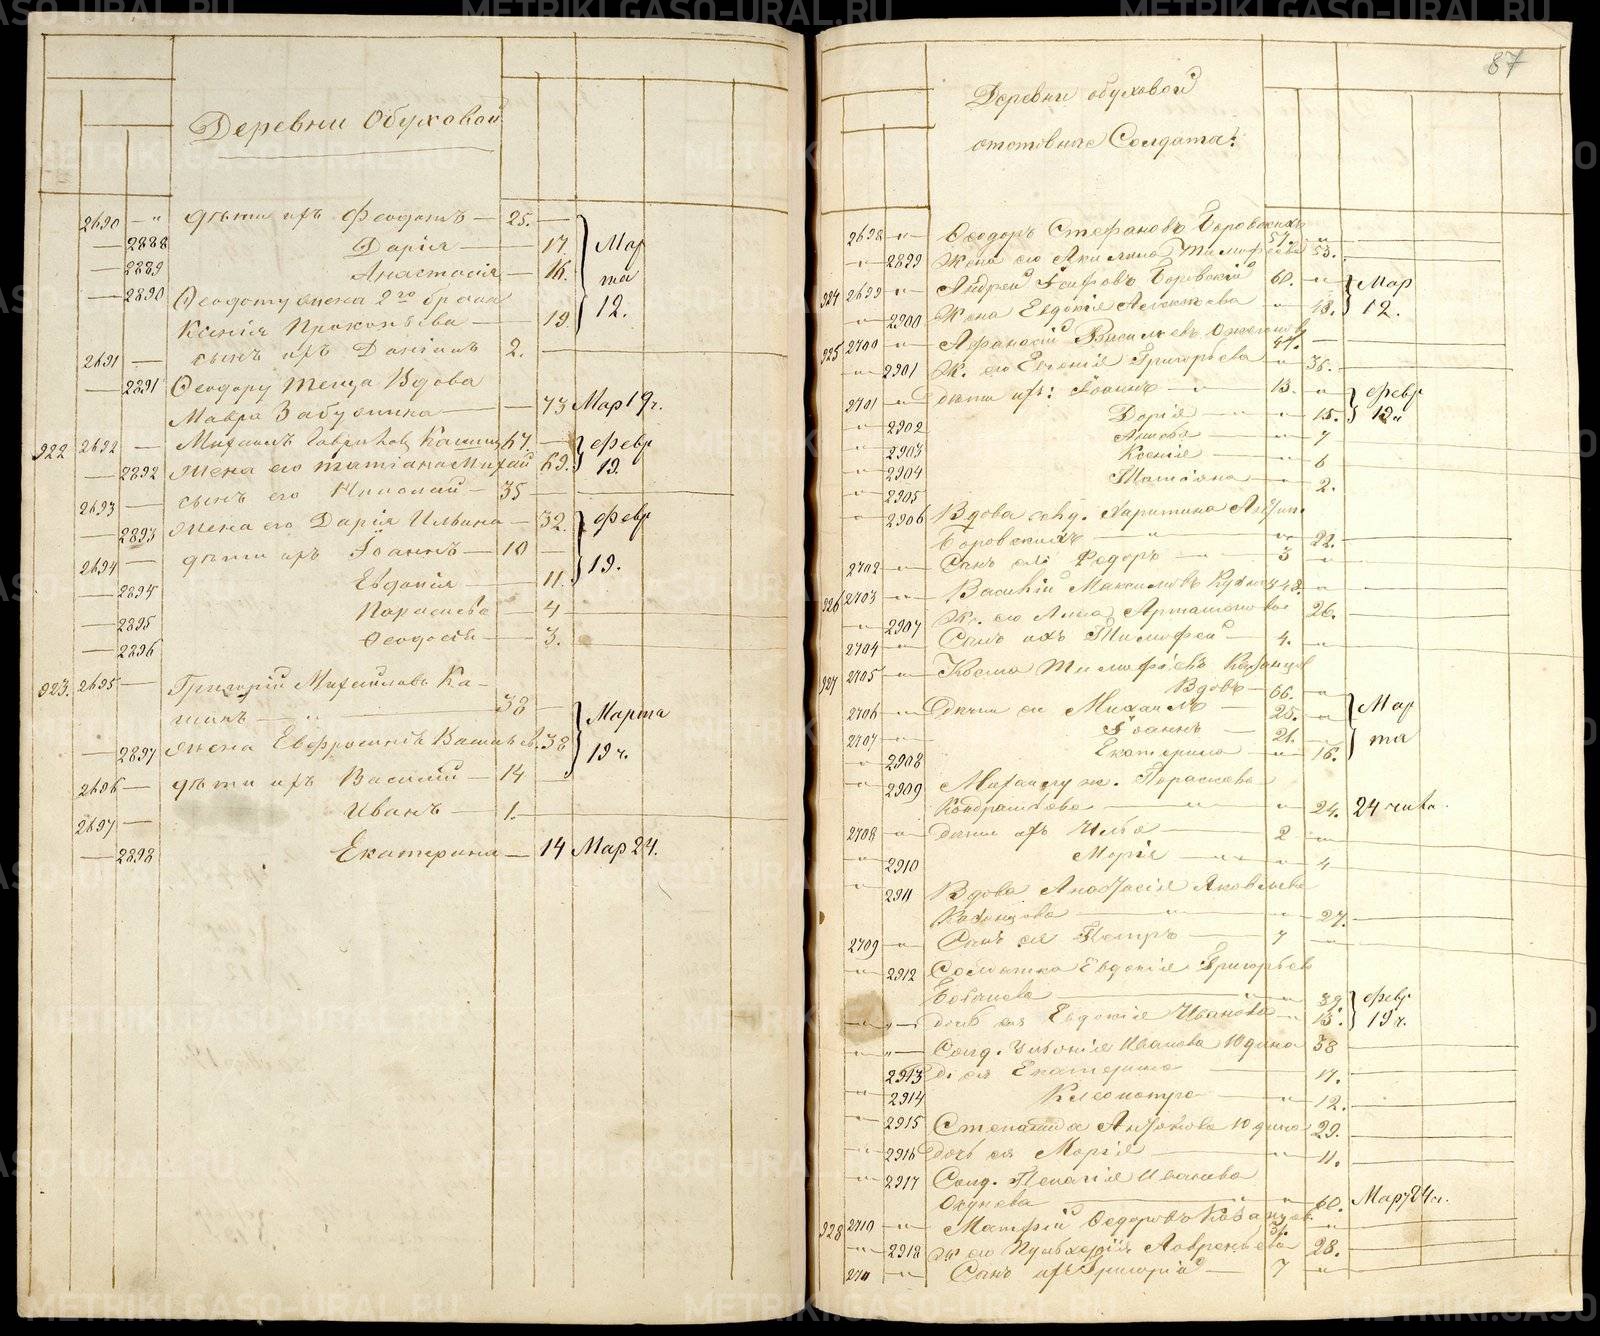 Деревни Обуховой
2690 — " дѣти ихъ Феодотъ — 25. —
— 2888 Дарія — 17
— 2889 Анастасія — 16.
Мар
та
12.
— 2890 Феодоту жена 2го брака
Ксенія Прокопьева — 19.
2691 — сынъ ихъ Даніилъ 2. —
— 2891 Феодору теща Вдова
Мавра — 73 Мар 19 ч.
922 2692 — Михаилъ 67. —
— 2892 жена его татіана 69.
февр
19.
2693 — сынъ его Николай — 35 —
— 2893 жена его Дарія Ильина — 32.
2694 — дѣти ихъ Іоаннъ — 10 —
февр
19.
— 2894 Евдокія — 11.
— 2895 Параскева — 4
— 2896 Феодосія — 3.
923. 2695 — Григорій Михайловъ Ка-
шинъ — " — 38 —
— 2897 жена Евфросинія 38
Марта
19 ч.
2696 — дѣти ихъ Василій — 14
2697 — Иванъ — 1.
— 2898 Екатерина — 14 Мар 24.
87
Деревни обуховой
отставные Солдаты:
2698 Феодоръ Стефановъ Боровскихъ 57.
2899 Жена его Акилина Тимофеева 53.
924 2699 Андрей Боровскій 60.
2900 Жена Евдокія 48.
Мар
12.
925 2700 Афанасій Васильевъ 47.
2901 Ж. его Евгенія Григорьева 36.
2701 дѣти ихъ: Іоаннъ 13.
2902 Дарія 15.
февр
19
2903 7
2904 Ксенія 6
2905 Татіана 2.
2906 Вдова солд. Харитина
Боровскихъ 22.
2702 Сынъ ея Федоръ 3
926 2703 Василій Максимовъ 48.
2907 Ж. его Анна 26.
2704 Сынъ ихъ Тимофей 4.
927 2705 Косма Тимофеевъ
Вдовъ — 66.
2706 Дѣти его Михаилъ 25.
2707 Іоаннъ 21.
2908 Екатерина 16.
Мар
та
2909 Михаилу ж. Параскева
Кондратьева 24. 24 числа
2708 Дѣти ихъ Илья 2
2910 Марія 4
2911 Вдова Анастасія Яковлева
27.
2709 Сынъ ея Петръ 7
2912 Солдатка Евдокія Григорьев
39.
дочь ея Евдокія Иванова 15.
февр
19 ч.
Солд. Иванова Юдина 58
2913 Д. ея Екатерина 17.
2914 Клеопатра 12.
2915 Степанида Юдина 29.
2916 дочь ея Марія 11.
2917 Солд. Пелагія Иванова
Окунева 60. Март 24 ч.
928 2710 Матфей Федоровъ 31.
2918 Ж его Пульхерія Лаврентьева 28.
2711 Сынъ ихъ Григорій — 7